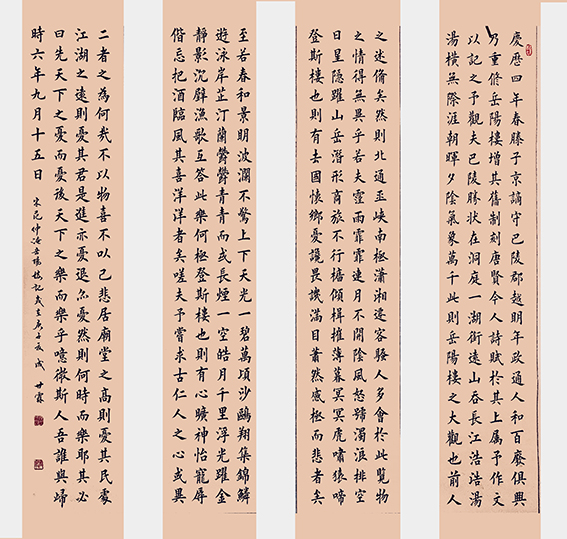 慶曆四年春滕子京謫守巴陵郡越明年政通人和百廢俱興
乃重修岳陽樓增其舊制刻唐賢今人詩賦於其上属予作文
以記之予觀夫巴陵勝狀在洞庭一湖銜遠山吞長江浩浩湯
湯橫無際涯朝暉夕陰氣象萬千此則岳陽樓之大觀也前人
之述備矣然則北通巫峽南極瀟湘遷客騷人多會於此覽物
之情得無異乎若夫霪雨霏霏連月不開陰風怒號濁浪排空
日星隱躍山岳潛形商旅不行檣傾楫摧薄暮冥冥虎嘯猿啼
登斯樓也則有去國懷鄉憂讒畏譏滿目蕭然感極而悲者矣
至若春和景明波瀾不驚上下天光一碧萬頃沙鷗翔集錦鱗
遊泳岸芷汀蘭鬱鬱青青而或長煙一空皓月千里浮光躍金
靜影沉璧漁歌互答此樂何極登斯樓也則有心曠神怡寵辱
偕忘把酒臨風其喜洋洋者矣嗟夫予嘗求古仁人之心或異
二者之為何哉不以物喜不以己悲居廟堂之高則憂其民處
江湖之遠則憂其君是進亦憂退亦憂然則何時而樂耶其必
曰先天下之憂而憂後天下之樂而樂乎噫微斯人吾誰與歸
時六年九月十五日 宋范仲淹岳陽樓記歲在庚子夏 成甘霖